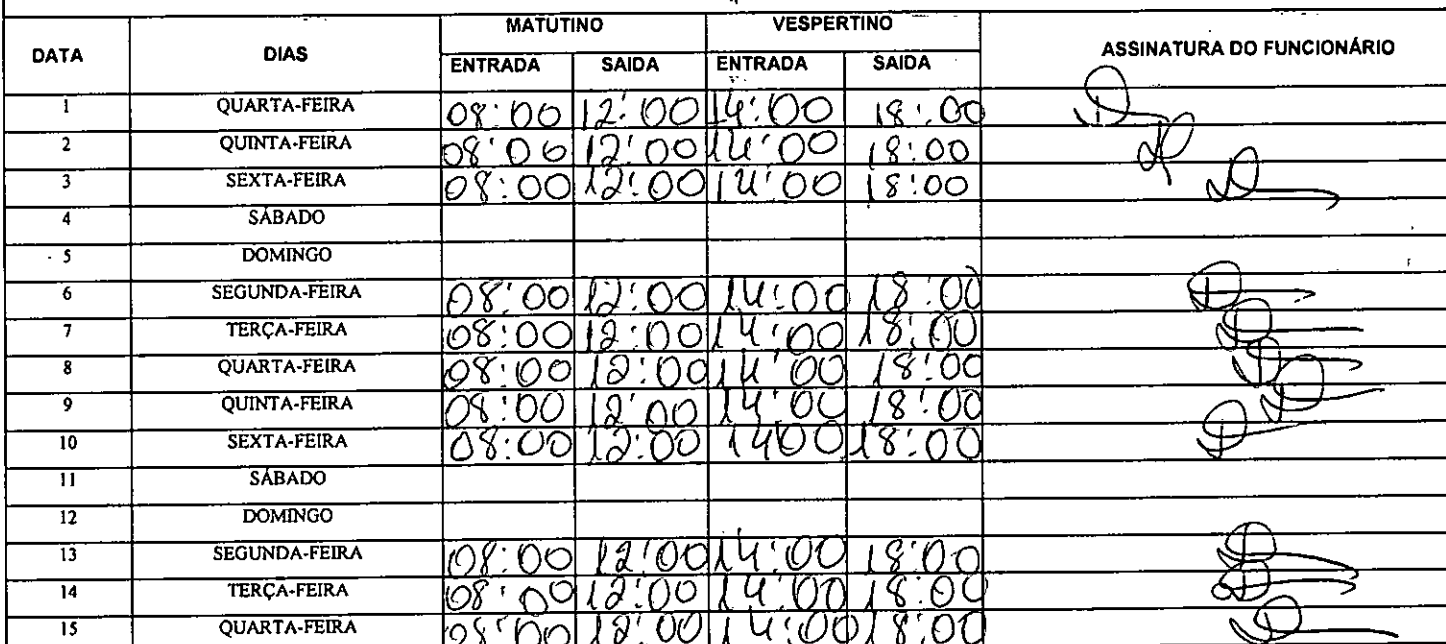 MATUTINO VESPERTINO
DATA DIAS ENTRADA SAIDA ENTRADA SAIDA ASSINATURA DO FUNCIONÁRIO
1 QUARTA-FEIRA 08:00 12:00 14:00 18:00
2 QUINTA-FEIRA 08:00 12:00 14:00 18:00
3 SEXTA-FEIRA 08:00 12:00 14:00 18:00
4 SÁBADO
5 DOMINGO
6 SEGUNDA-FEIRA 08:00 12:00 14:00 18:00
7 TERÇA-FEIRA 08:00 12:00 14:00 18:00
8 QUARTA-FEIRA 08:00 12:00 14:00 18:00
9 QUINTA-FEIRA 08:00 12:00 14:00 18:00
10 SEXTA-FEIRA 08:00 12:00 1400 18:00
11 SÁBADO
12 DOMINGO
13 SEGUNDA-FEIRA 08:00 12:00 14:00 18:00
14 TERÇA-FEIRA 08:00 12:00 14:00 18:00
15 QUARTA-FEIRA 08:00 12:00 14:00 18:00